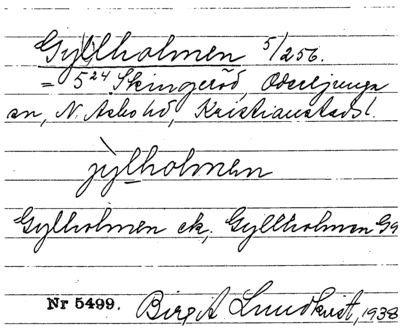 Gyllholmen 5/256.
= 5 24 Skingeröd, Oderljunga
sn, N. Åsbo hd, Kristianstads l.
jylholmen
Gylholmen ek, Gyllholmen Ga
Nr 5499. Birg. A Lundkvist, 1938